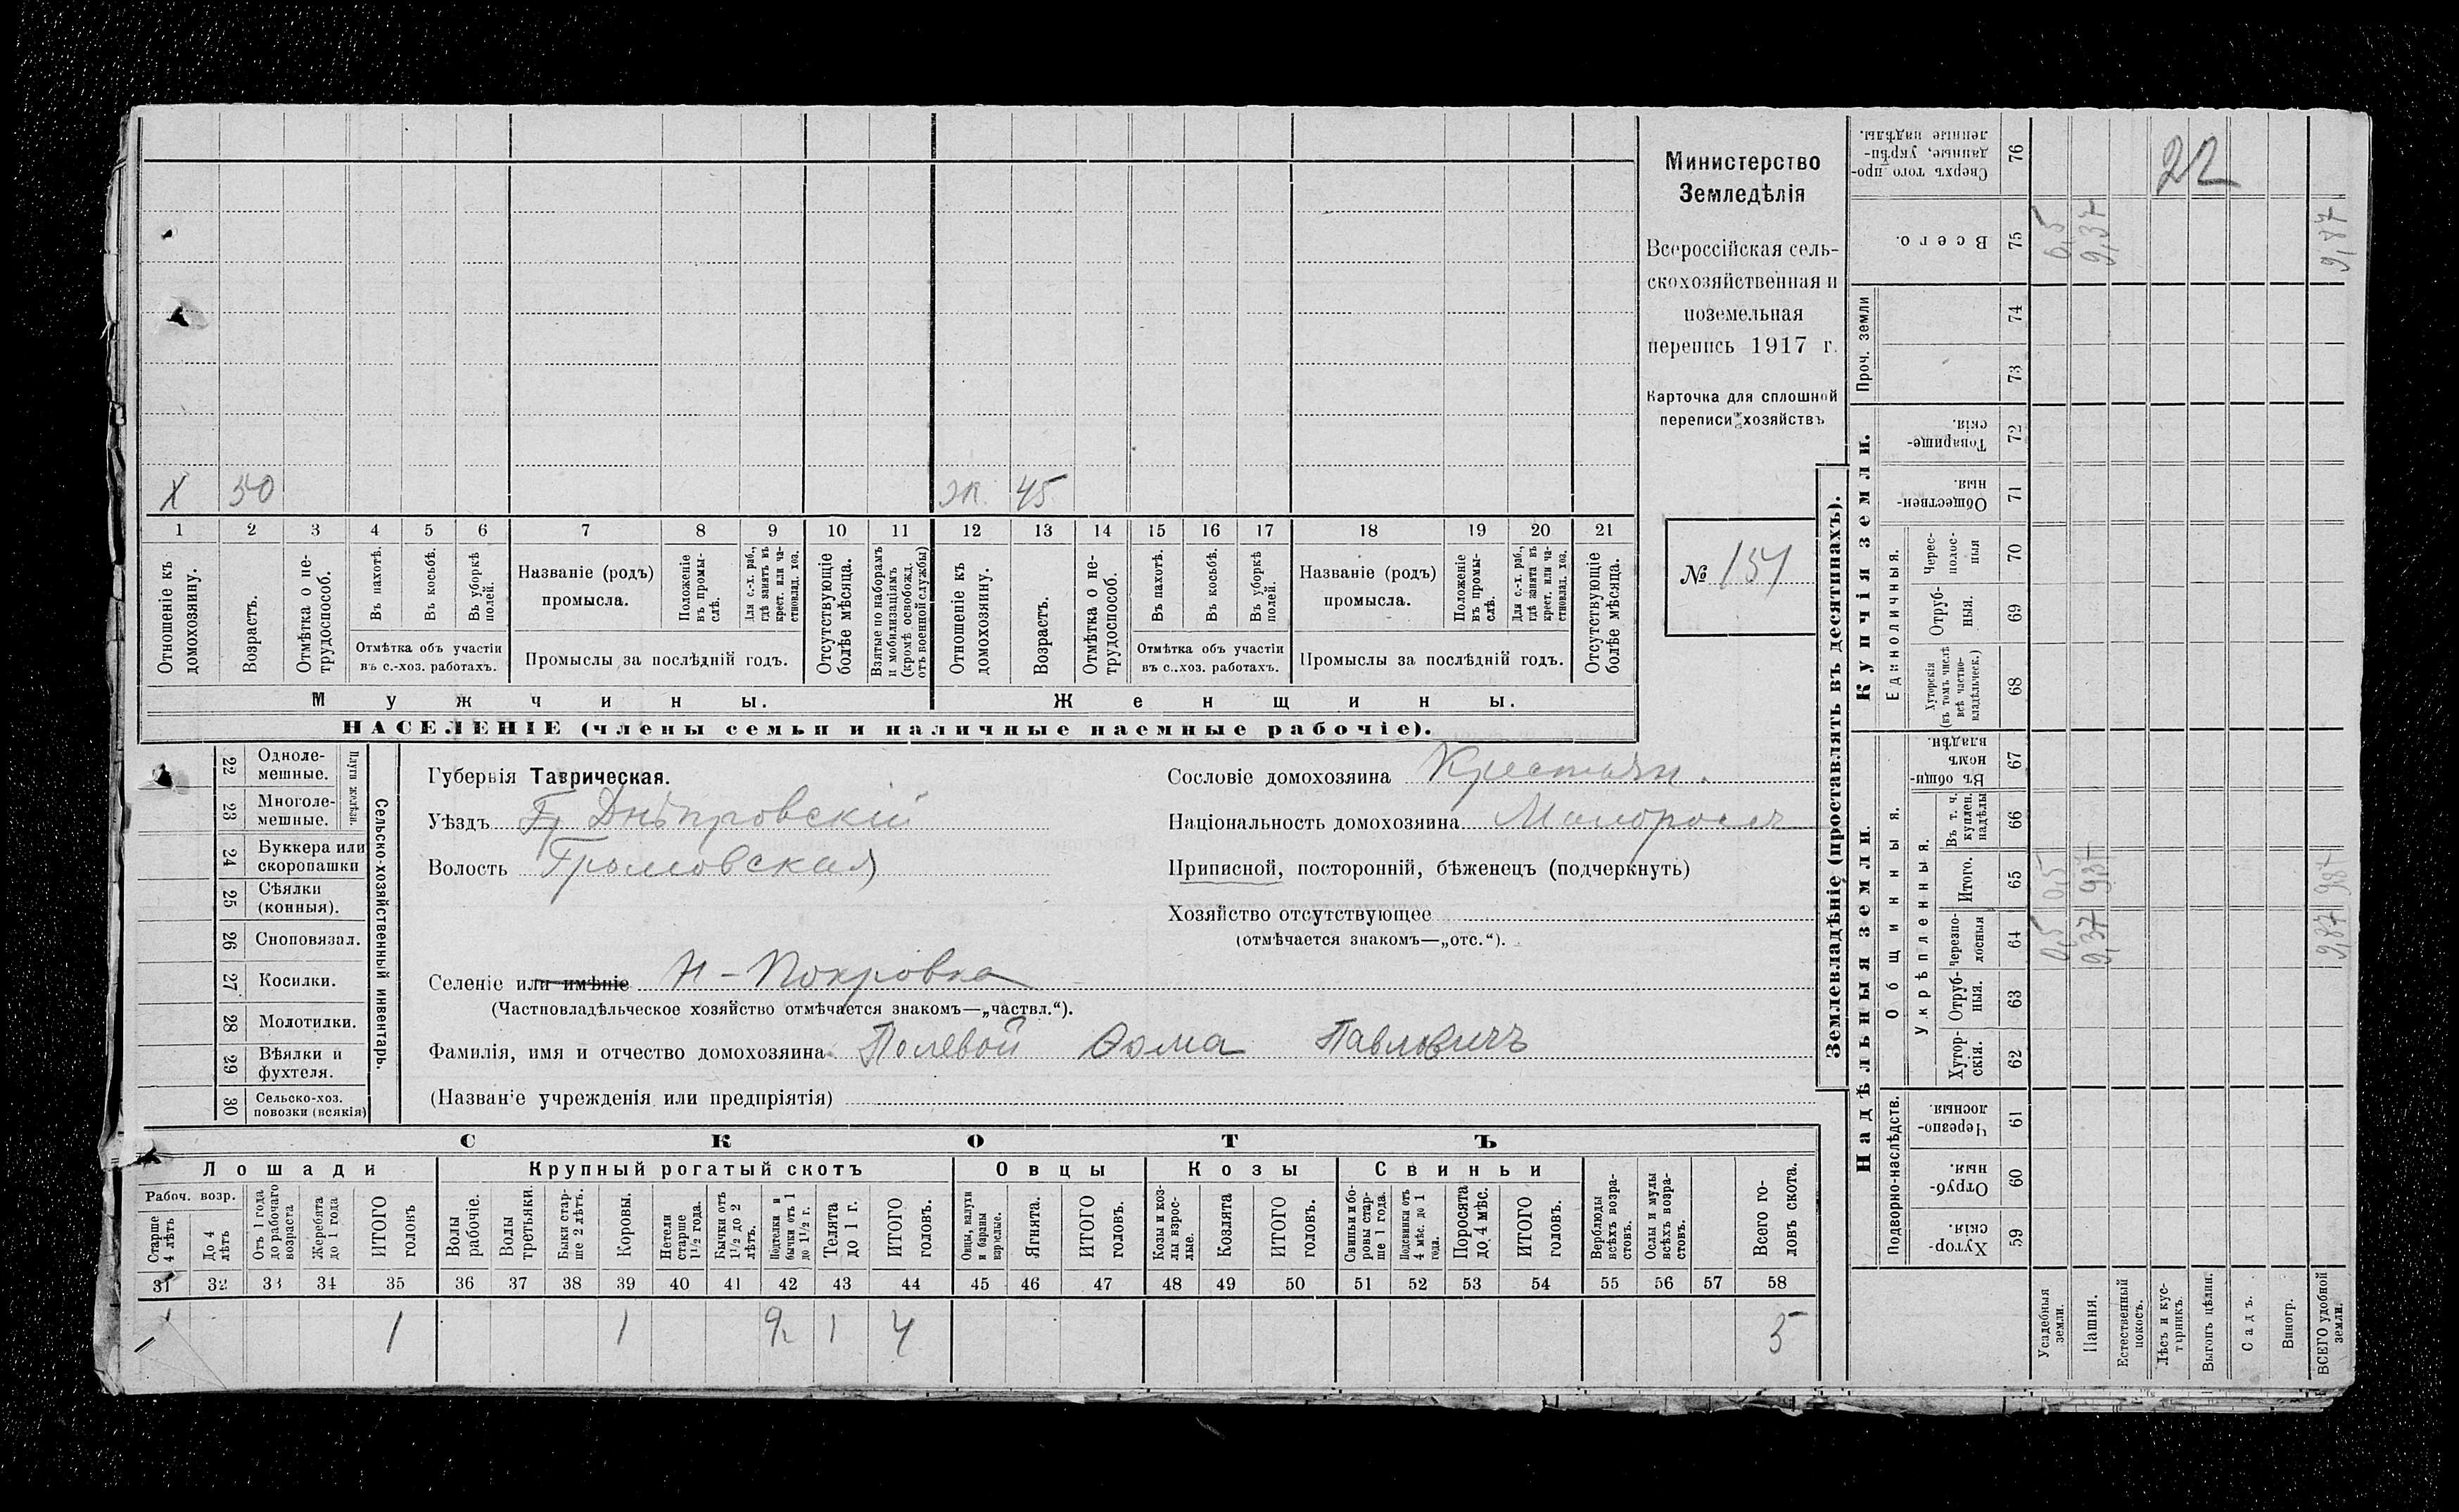 Х 50 ж. 45
1 2 3 4 5 6 7 8 9 10 11 12 13 14 15 16 17 18 19 20 21
Отношеніе къ домохозяину.
Возрастъ.
Отмѣтка о не-
трудоспособ.
Въ пахотѣ.
Въ косьбѣ.
Въ уборкѣ
полей.
Отмѣтка объ участіи
въ с.-хоз. работахъ.
Названіе (родъ)
промысла.
Положеніе
въ промы-
слѣ.
Для с.-х. раб.,
гдѣ занятъ въ
крест. или ча-
стновлад. хоз.
Промыслы за послѣдній годъ.
Отсутствующіе
болѣе мѣсяца.
Взятые по наборамъ
и мобилизаціямъ
(кромѣ освобожд.
отъ военной службы)
Отношеніе къ
домохозяину.
Возрастъ.
Отмѣтка о не-
трудоспособ.
Въ пахотѣ.
Въ косьбѣ.
Въ уборкѣ
полей.
Отмѣтка объ участіи
въ с..хоз. работахъ.
Названіе (родъ)
промысла.
Положеніе
въ промы-
слѣ.
Для с.-х. раб.,
гдѣ занята въ
крест. или ча-
стновлад. хоз.
Промыслы за послѣдній годъ.
Отсутствующіе
болѣе мѣсяца.
Мужчины.
Женщины.
НАСЕЛЕНІЕ (члены семьи и наличные наемные рабочіе).
Министерство
Земледѣлія
Всероссійская сель-
скохозяйственная и
поземельная
перепись 1917 г.
Карточка для сплошной
переписи хозяйствъ
№ 151
22 Одноле-
мешные.
23 Многоле-
мешные.
Плуги желѣзн.
24 Буккера или
скоропашки
25 Сѣялки
(конныя).
26 Сноповязал.
27 Косилки.
28 Молотилки.
29 Вѣялки и
фухтеля.
30 Сельско-хоз.
повозки (всякія)
Сельско-хозяйственный инвентарь.
Губернія Таврическая.
Уѣздъ Днѣпровскій
Волость Громовская
Селеніе или имѣніе Н-Покровка
(Частновладѣльческое хозяйство отмѣчается знакомъ—„частвл.“).
Фамилія, имя и отчество домохозяина Полевой Ѳома Павловичъ
(Названіе учрежденія или предпріятія)
Сословіе домохозяина Крестьян.
Національность домохозяина Малоросъ
Приписной, посторонній, бѣженецъ (подчеркнуть)
Хозяйство отсутствующее
(отмѣчается знакомъ—„отс.“).
СКОТЪ
Лошади
Крупный рогатый скотъ
Овцы
Козы
Свиньи
Рабоч. возр.
Старше
4 лѣтъ
До 4
лѣтъ
Отъ 1 года
до рабочаго
возраста
Жеребята
до 1 года
ИТОГО
головъ
Волы
рабочіе.
Волы
третьяки.
Быки стар-
ше 2 лѣтъ.
Коровы.
Нетели
старше
1½ года.
Бычки отъ
1½ до 2
лѣтъ.
Подтелки и
бычки отъ 1
до 1½ г.
Телята
до 1 г.
ИТОГО
головъ.
Овцы, валухи
и бараны
взрослые.
Ягнята.
ИТОГО
головъ.
Козы и коз-
лы взрос-
лые.
Козлята
ИТОГО
головъ.
Свиньи и бо-
ровы стар-
ше 1 года.
Подсвинки отъ
4 мѣс. до 1
года.
Поросята
до 4 мѣс.
ИТОГО
головъ.
Верблюды
всѣхъ возра-
стовъ.
Ослы и мулы
всѣхъ возра-
стовъ.
Всего го-
ловъ скота.
31 32 33 34 35 36 37 38 39 40 41 42 43 44 45 46 47 48 49 50 51 52 53 54 55 56 57 58
1 1 1 2 1 4 5
Землевладѣніе (проставлять въ десятинахъ).
Надѣльныя земли.
Купчія земли.
Проч. земли
Подворно-наслѣдств.
Общинныя.
Укрѣпленныя.
Единоличныя.
Хутор-
скія. 59
Отруб-
ныя. 60
Черезпо-
лосныя. 61
Хутор-
скія. 62
Отруб-
ныя. 63
Черезпо-
лосныя 64
Итого. 65
Въ т. ч.
куплен.
надѣлы 66
Въ общи-
номъ
владѣн. 67
Хуторскія
(въ томъ числѣ
всѣ частно-
владѣльческ.) 68
Отруб-
ныя. 69
Черес-
полос-
ныя 70
Обществен-
ныя. 71
Товарище-
скія. 72
73
74
Всего. 75
Сверхъ того про-
данные, укрѣп-
ленные надѣлы. 76
22
Усадебныя
земли. 0,5 0,5 0,5
Пашня. 9,37 9,37 9,37
Естественный
покосъ.
Лѣсъ и кус-
тарникъ.
Выгонъ цѣлин.
Садъ.
Виногр.
ВСЕГО удобной
земли. 9,87 9,87 9,87